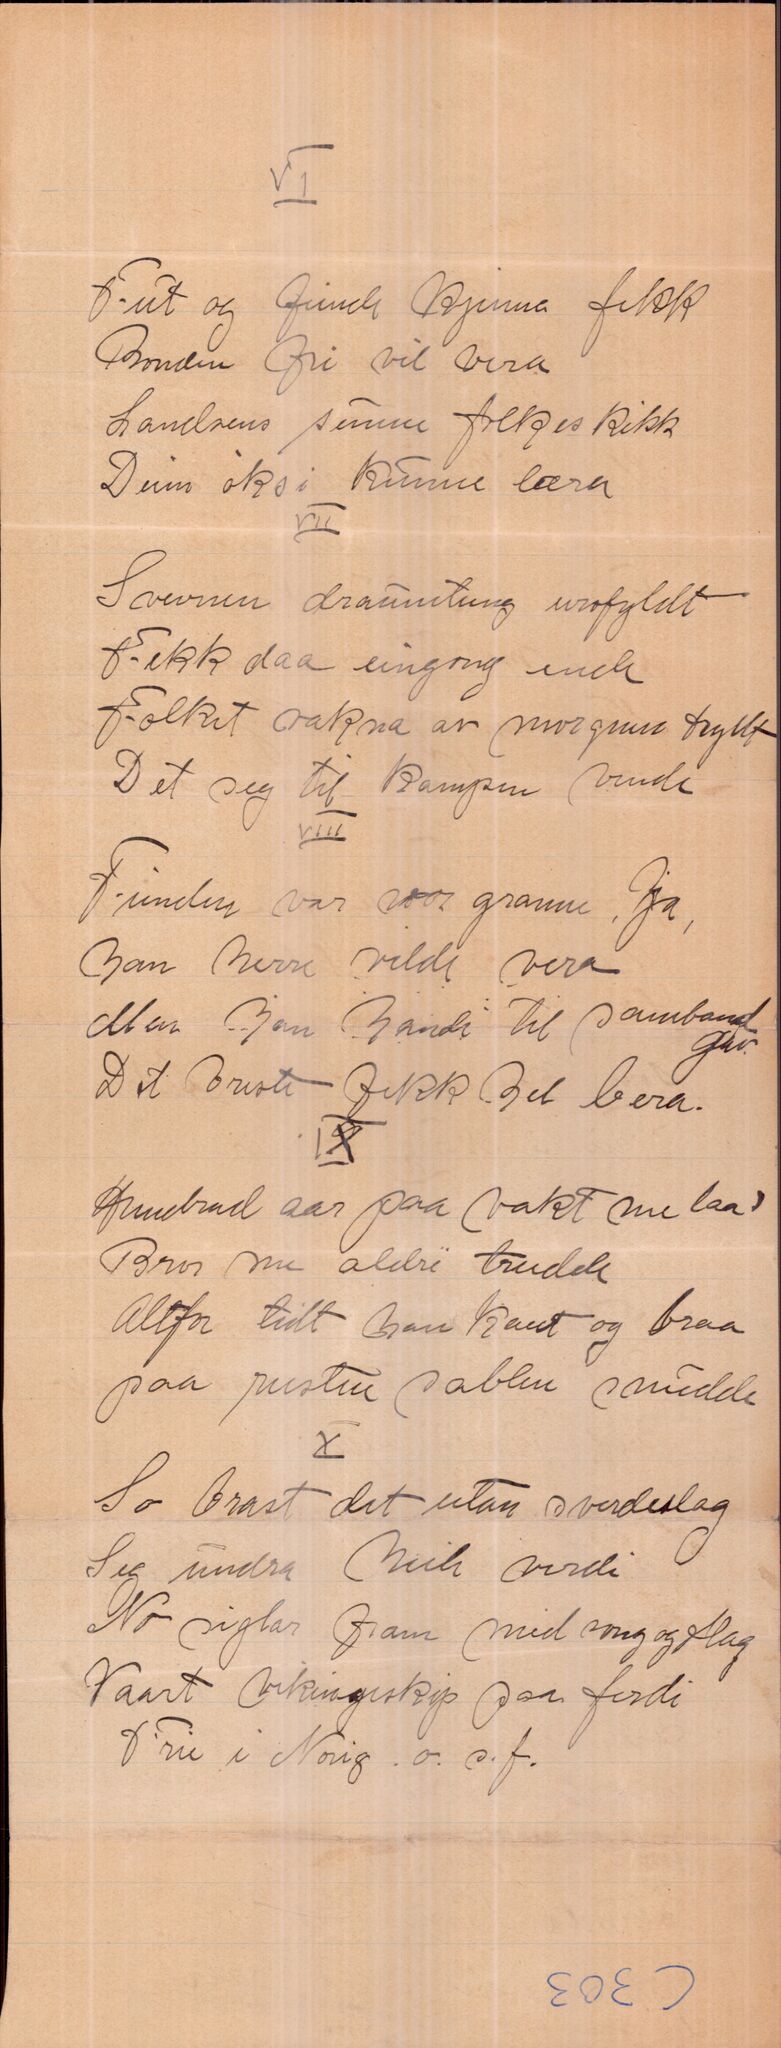 VI
Fut og fiende kjenna fekk
Bonden fri vil vera
Landsens sønne folkeskikk
Deim øksi kunne læra
VII
Svevnen draumtung urofyldt
Fekk daa eingong ende
Folket vakna av morgnen tryllt
Det seg til kampen vende
VIII
Fienden var vor granne, Ja,
han herre vilde vera
Men han handi til samband
gav.
Det briste fekk het bera.
IX
Hundrad aar paa vakt me laa
Bror me aldri trudde
Altfor tidt han kaut og braa
paa rusten sablen smudde
X
So brast det utan sverdeslag
Seg undra heile verdi
No siglar fram med song og flag
Vaart vikingskip paa ferdi
Frie i Norig . o. s.f.
C303